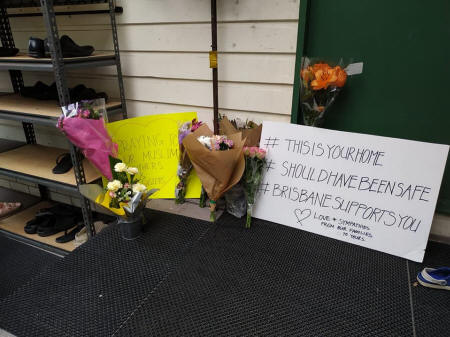 PRAYING FOR
OUR MUSLIM
# THIS IS YOUR HOME
# SHOULD HAVE BEEN SAFE
# BRISBANE SUPPORTS YOU
♡ LOVE + SYMPATHIES
FROM OUR FAMILIES
TO YOURS